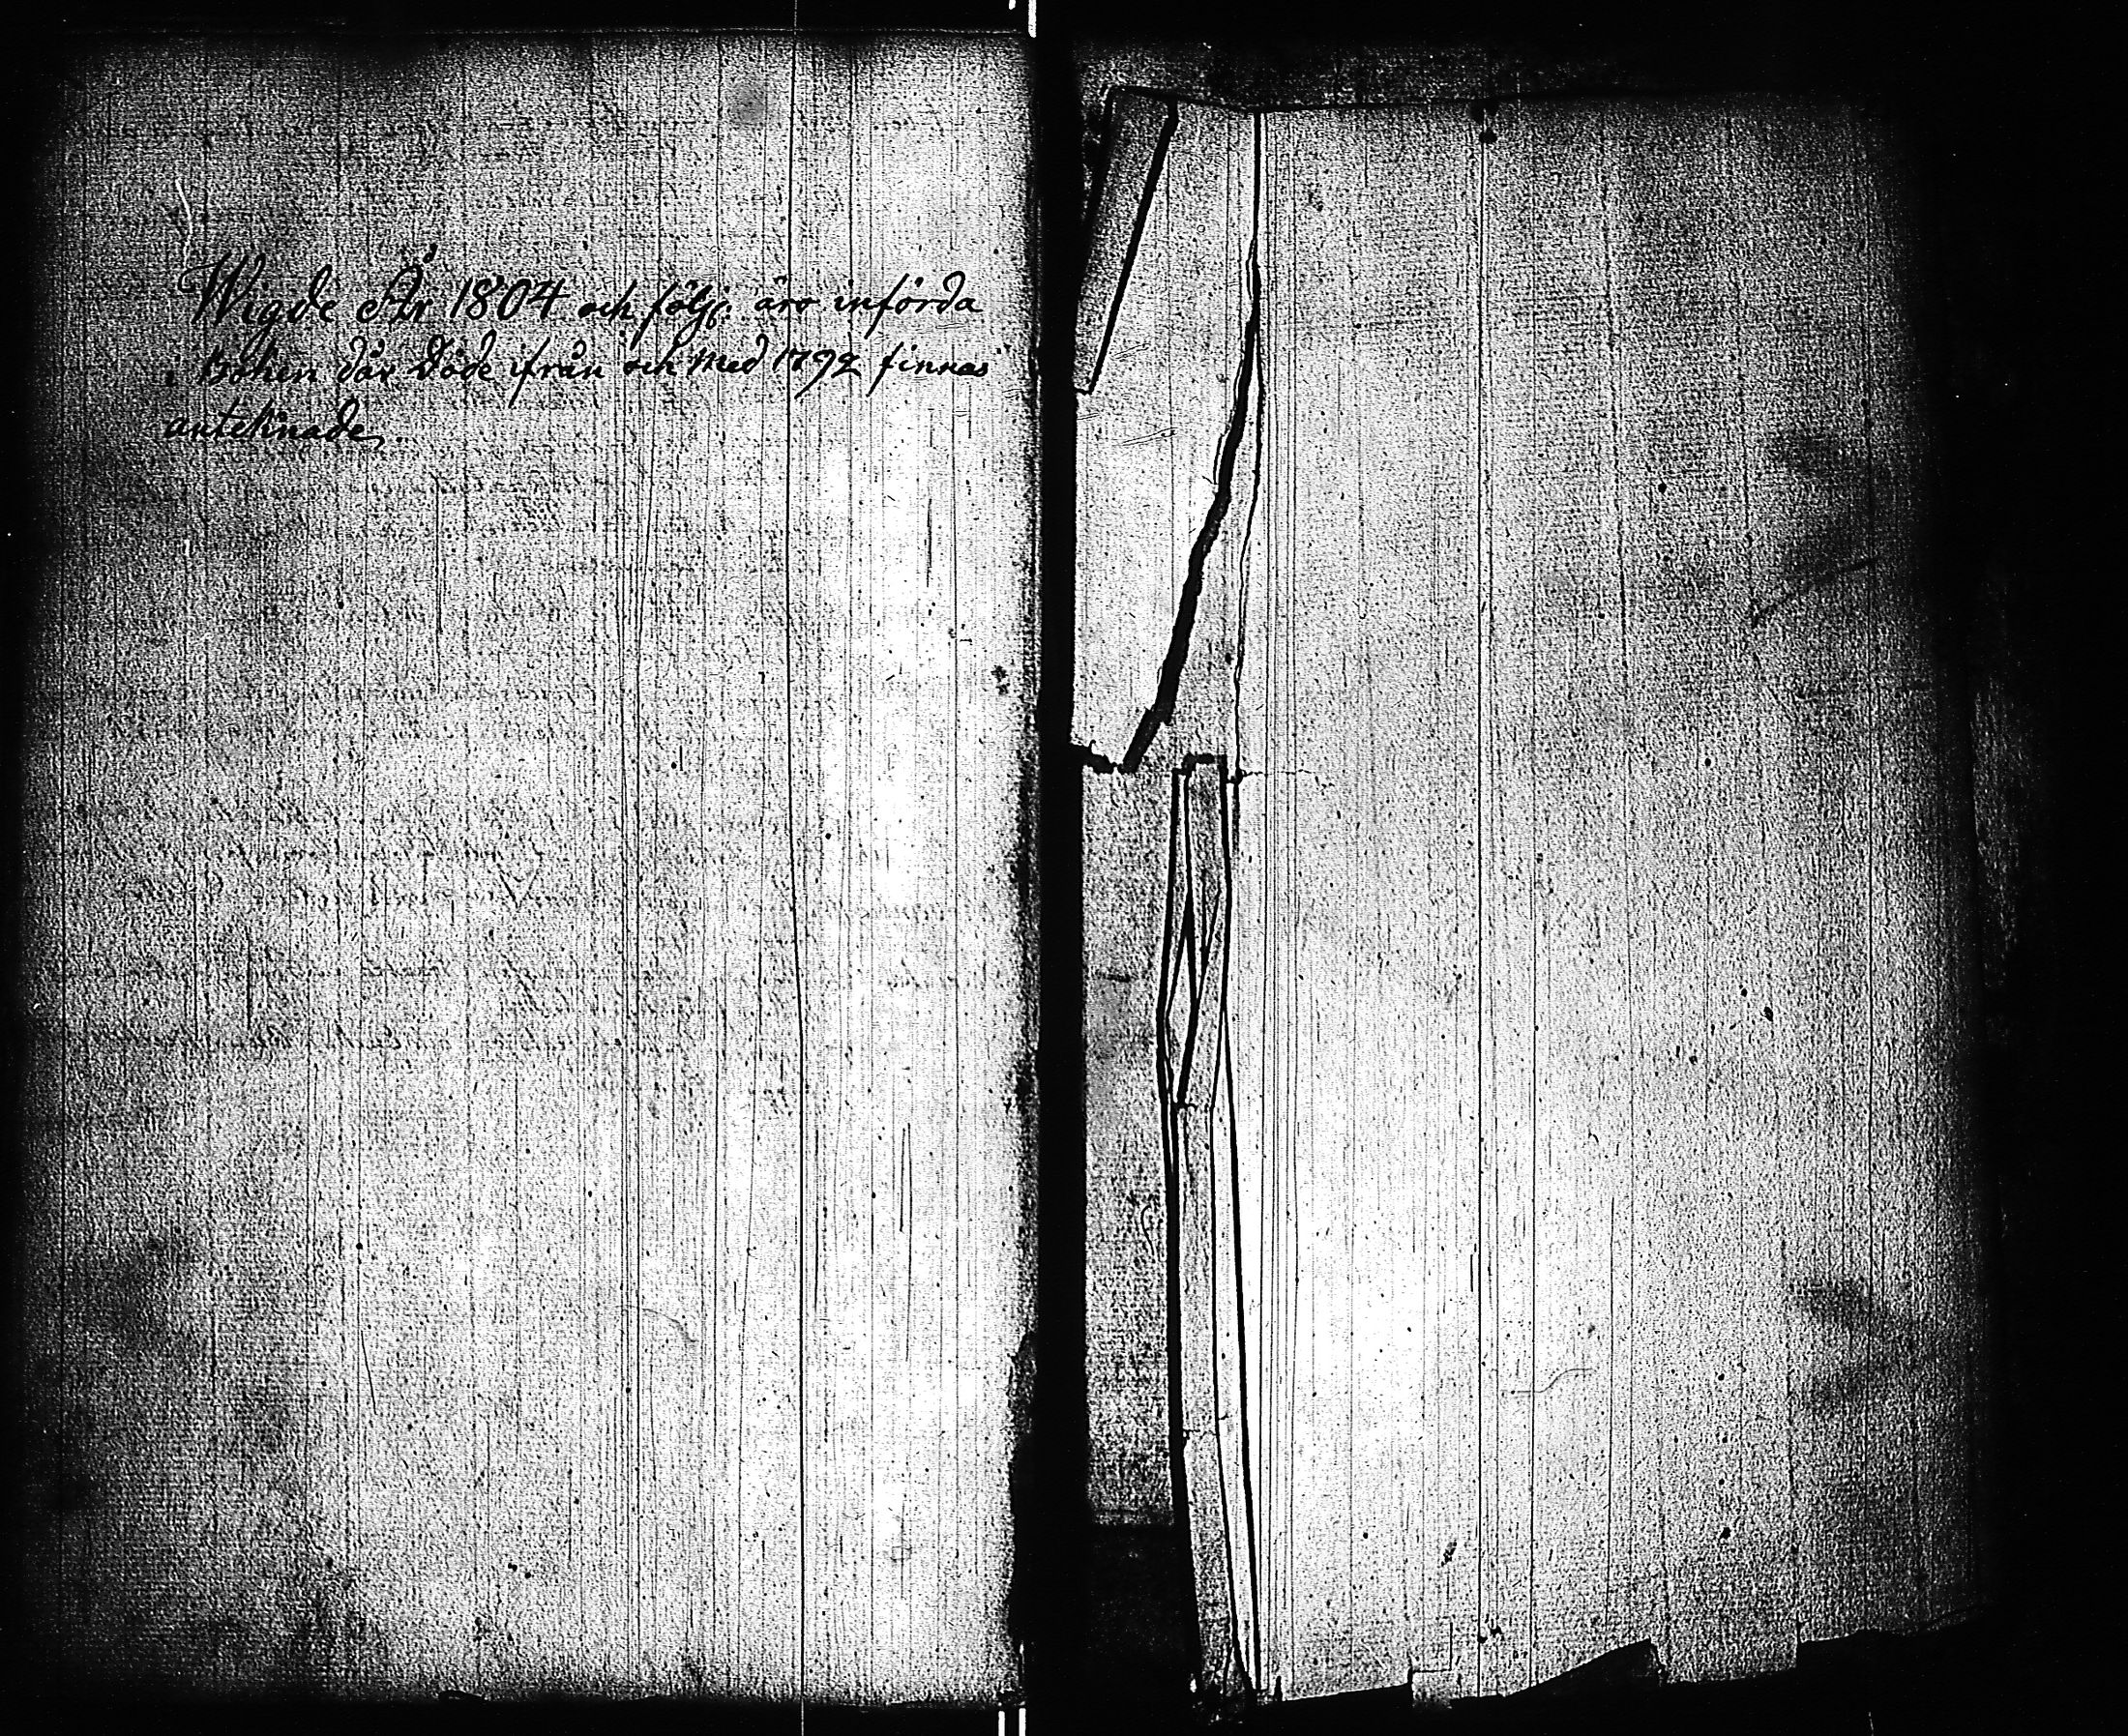 Wigde År 1804 och följ: äro införda
i Boken där Döde ifrån och med 1792 finnas
anteknade.